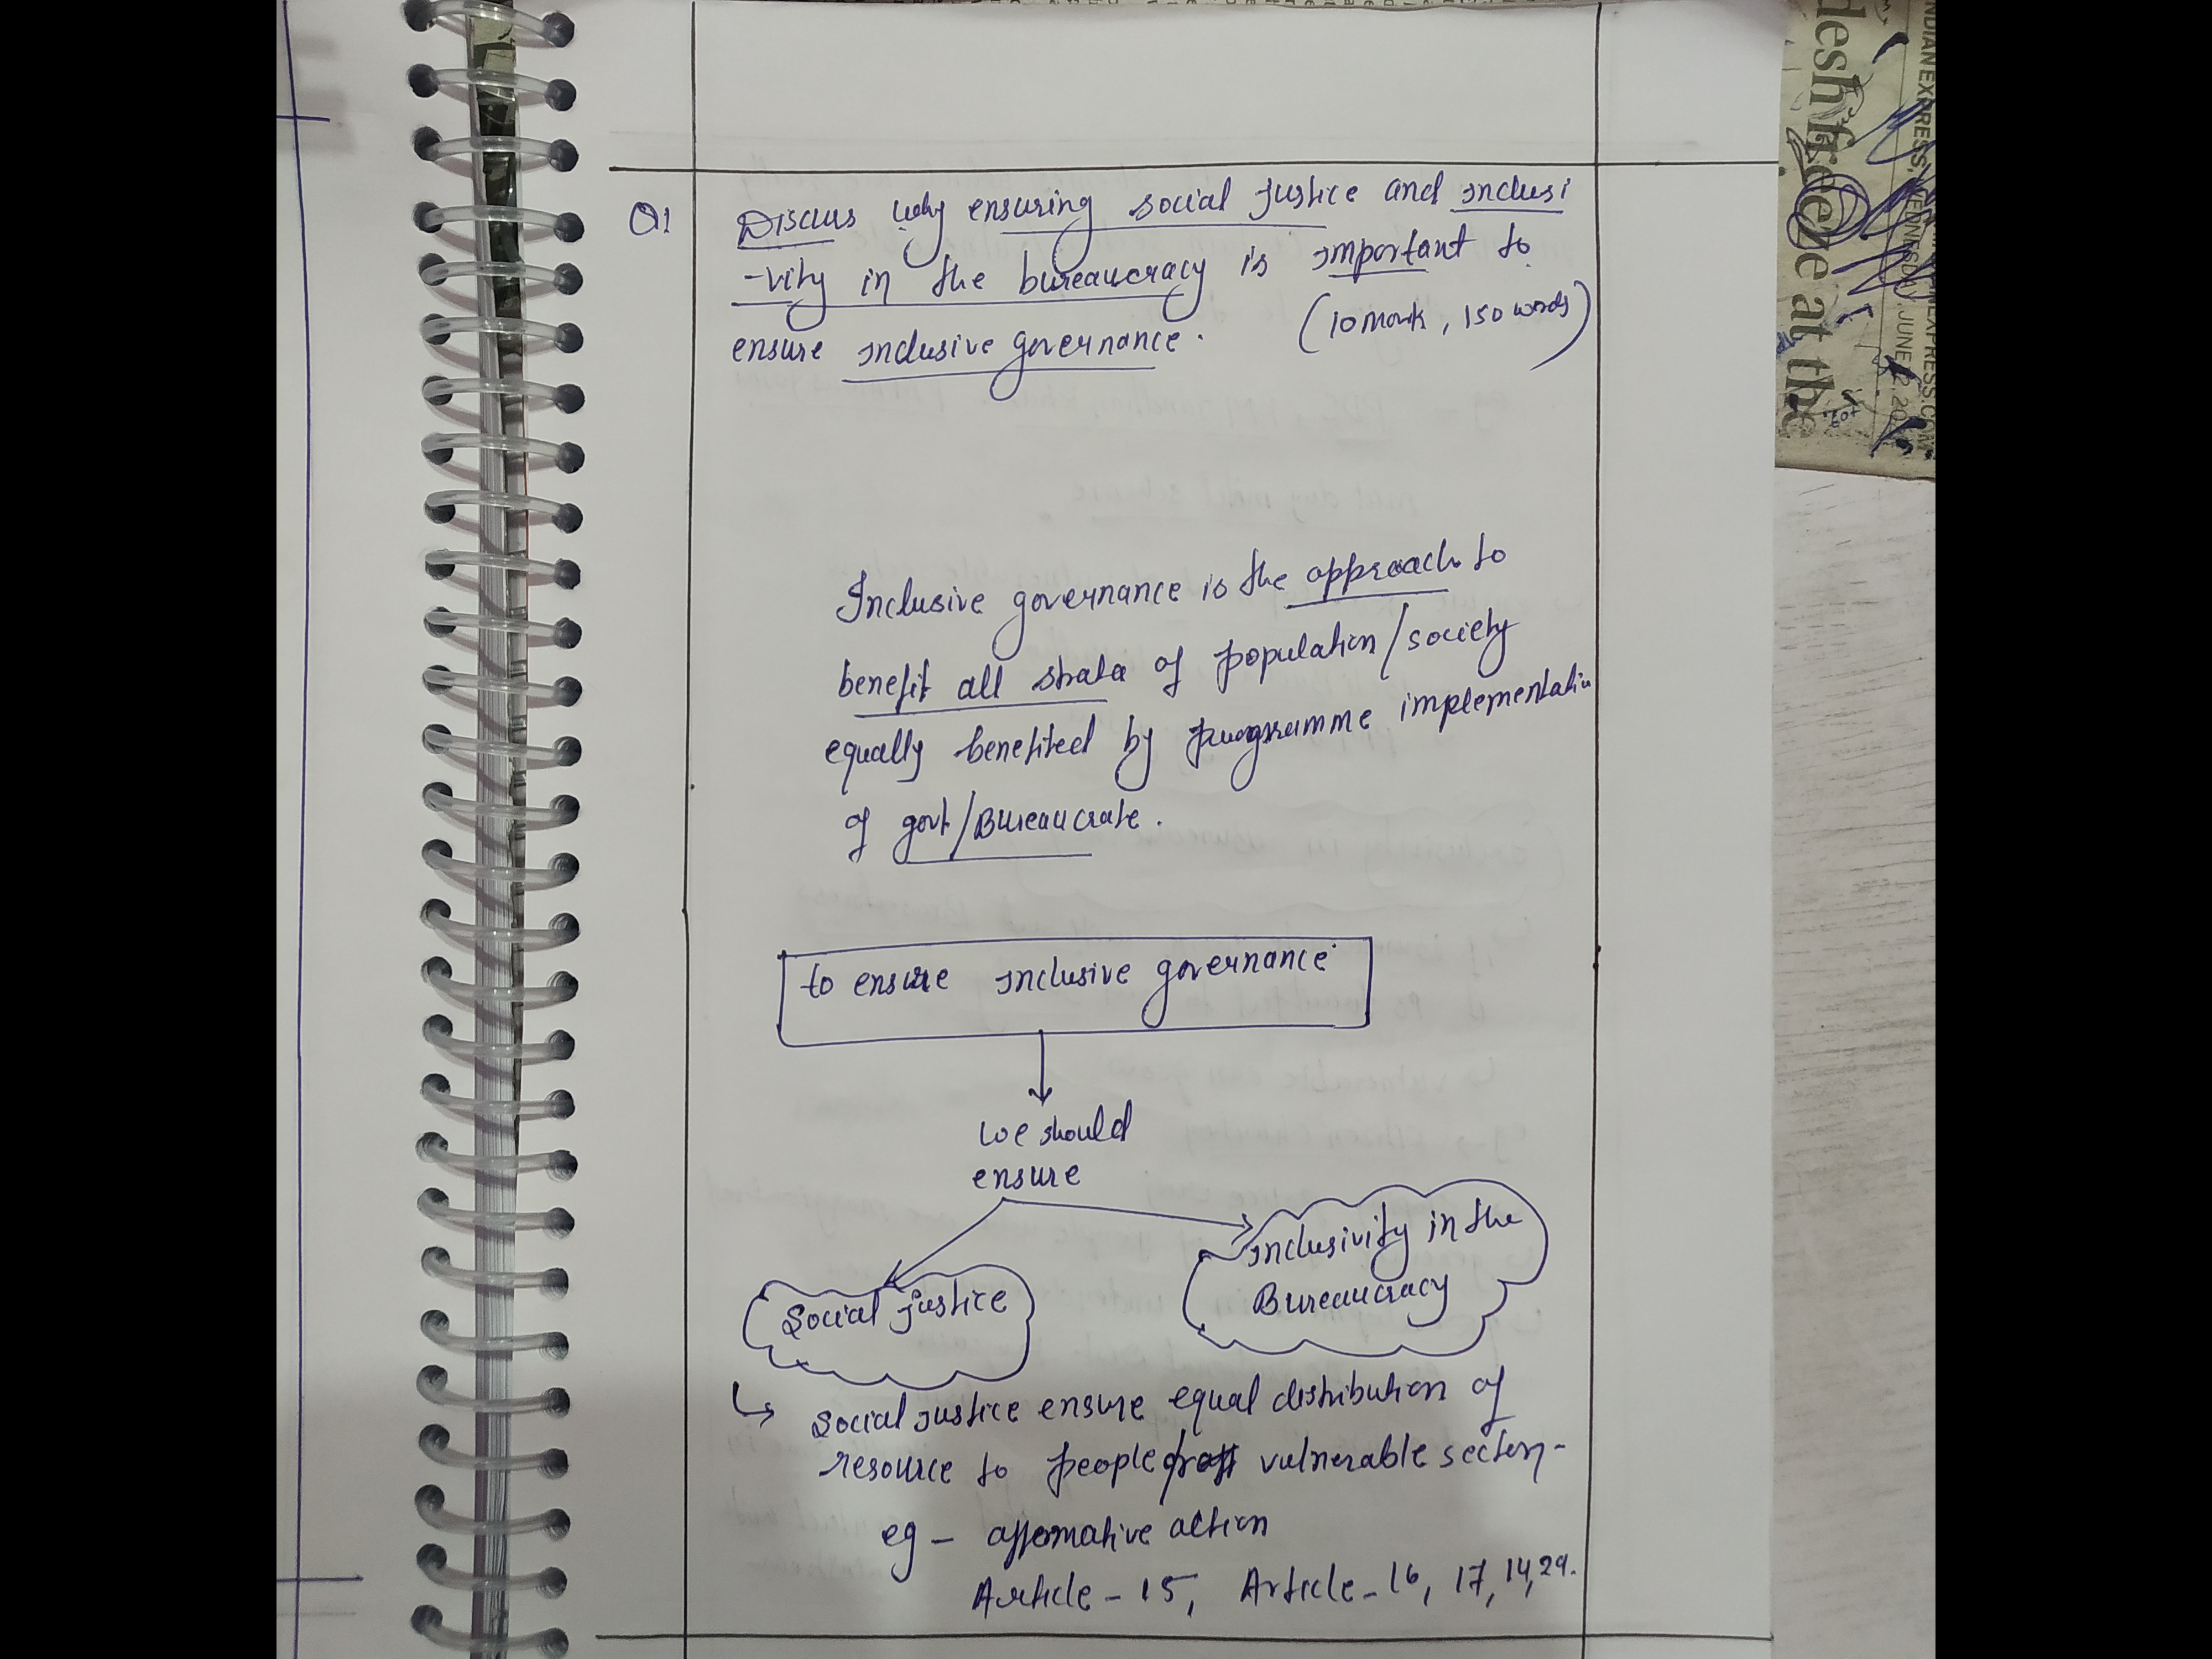 Q1
Discuss why ensuring social justice and inclusi
-vity in the bureaucracy is important to
ensure inclusive governance.
(10 mark, 150 words)
Inclusive governance is the approach to
benefit all strata of population/society
equally benefited by programme implementation
of govt/Bureaucrate.
to ensure inclusive governance
we should
ensure
Social justice
inclusivity in the
Bureaucracy
social justice ensure equal distribution of
resource to people vulnerable section-
eg - affirmative action
Article - 15, Article - 16, 17, 14, 29.
desh freeze at the